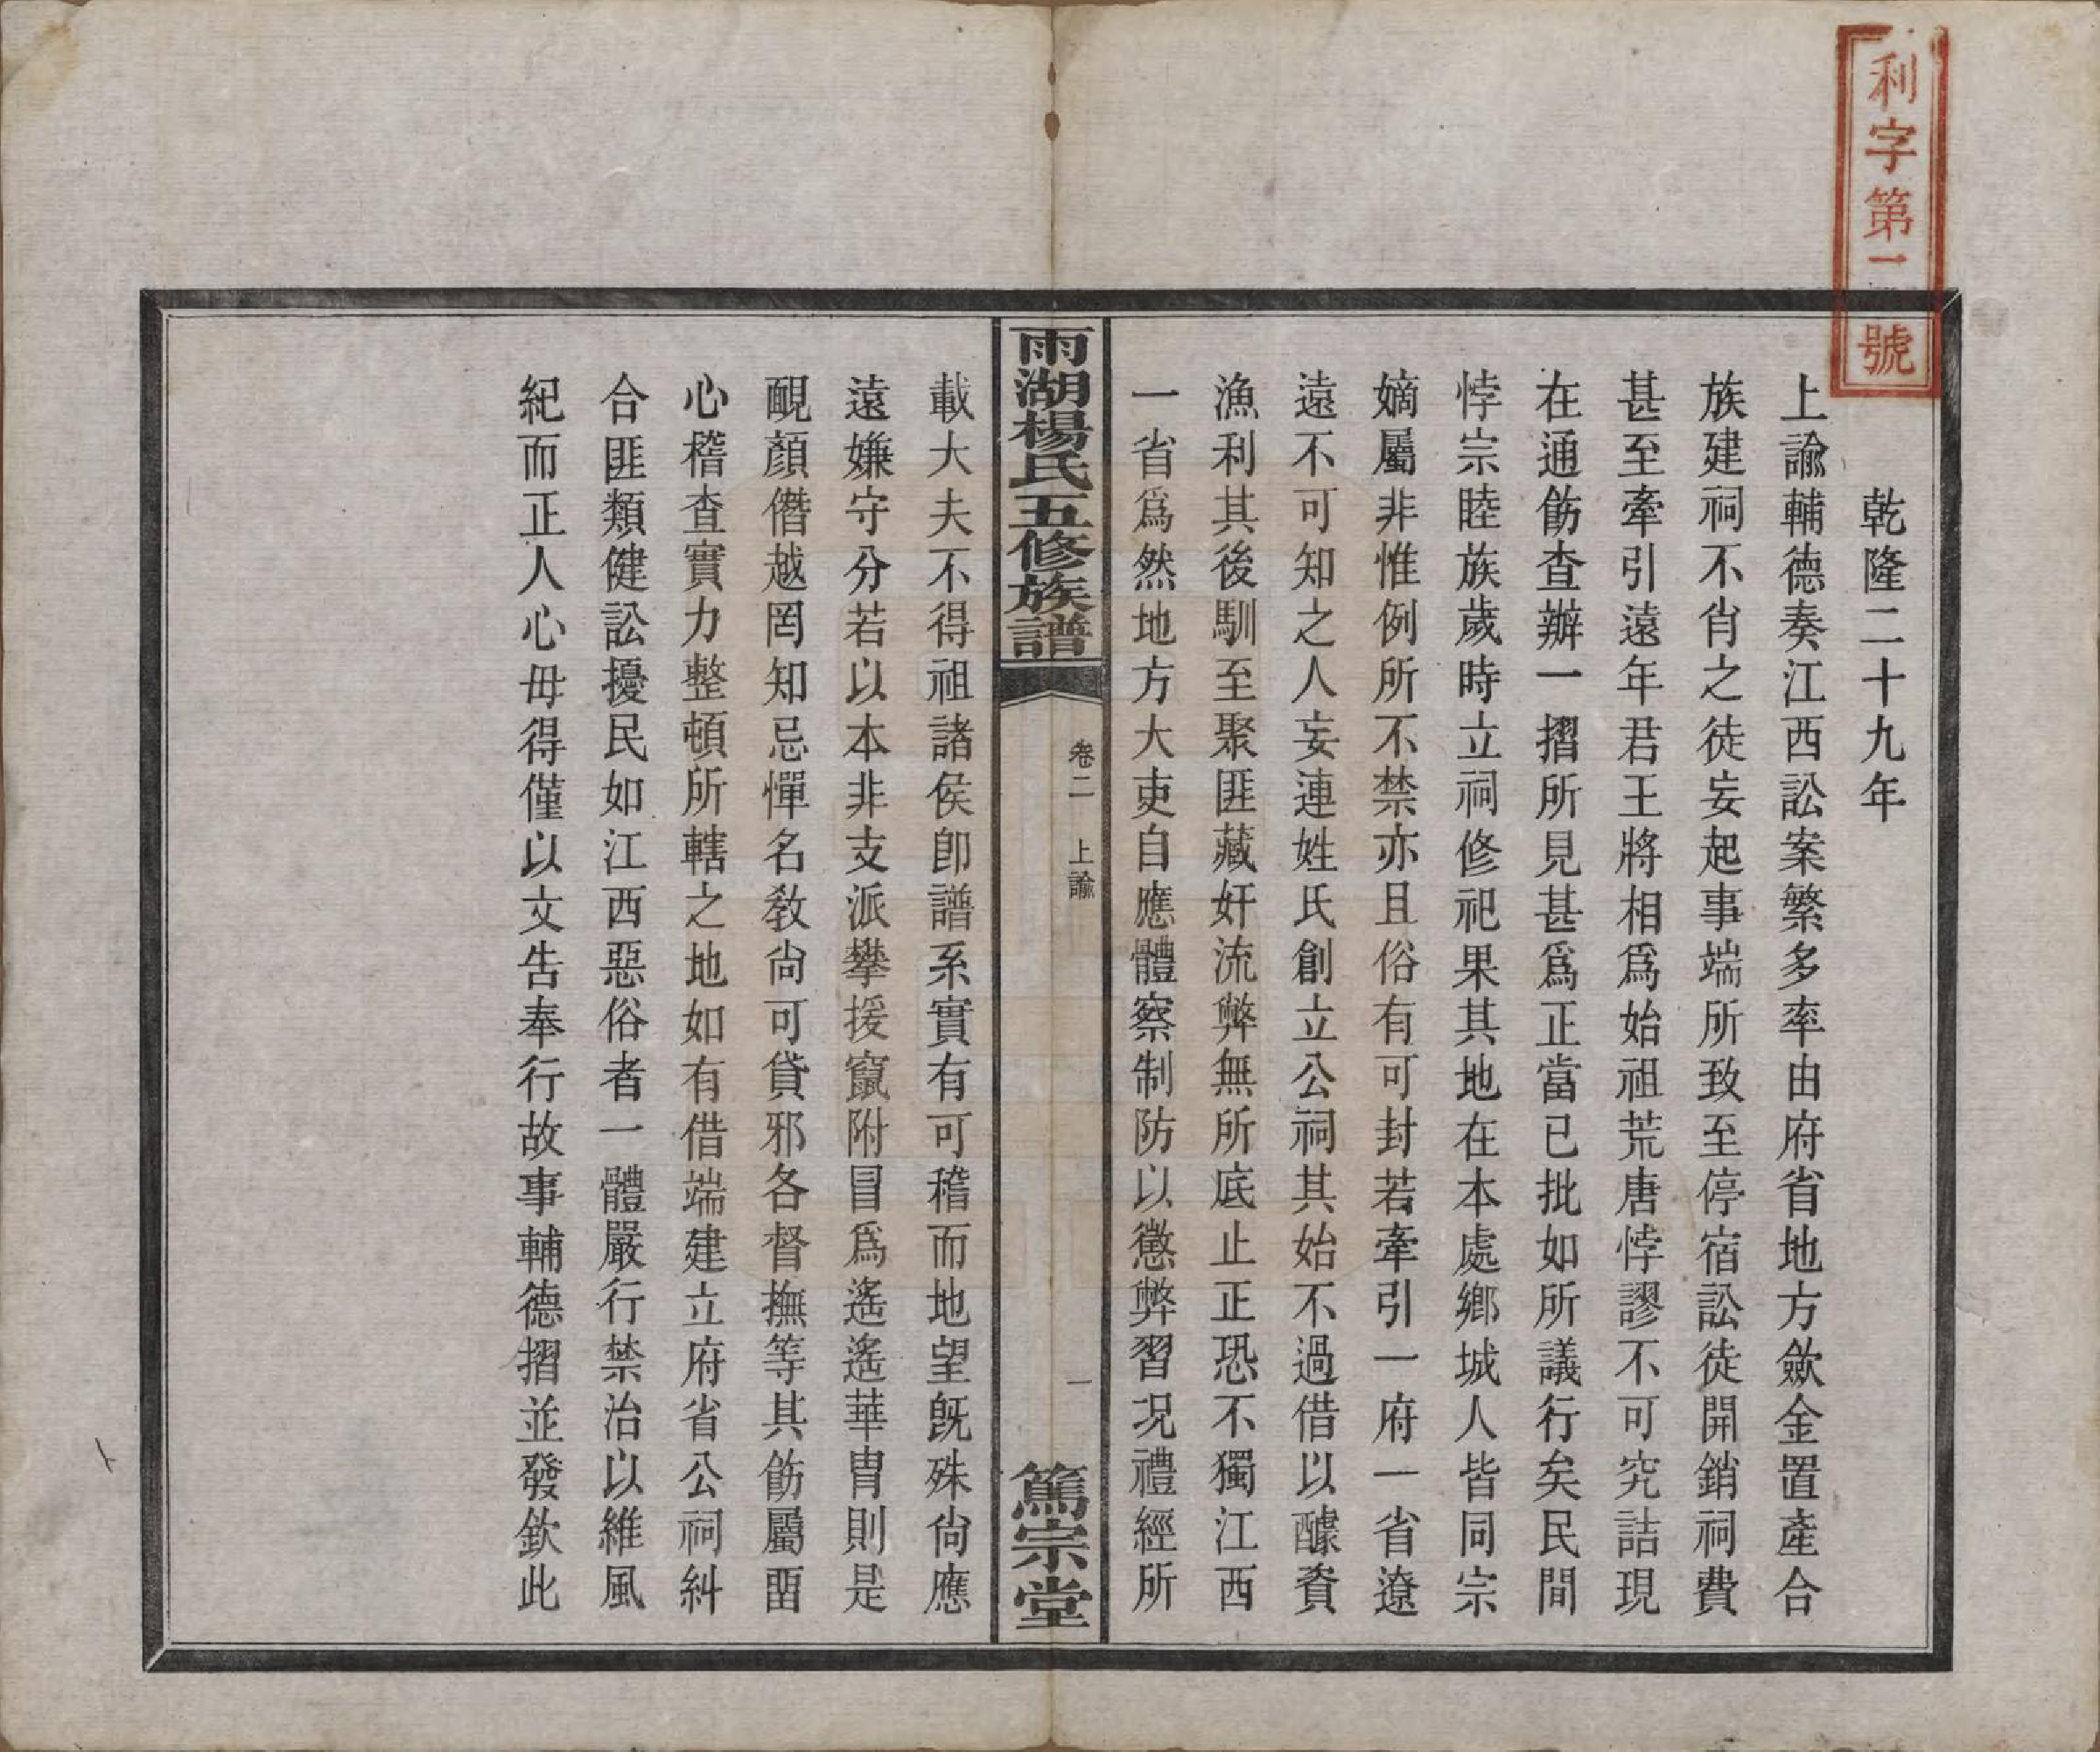 利字第一號
乾隆二十九年
上諭輔德奏江西訟案繁多率由府省地方歛金置產合
族建祠不肖之徒妄起事端所致至停宿訟徒開銷祠費
甚至牽引遠年君王將相爲始祖荒唐悖謬不可究詰現
在通飭查辦一摺所見甚爲正當已批如所議行矣民間
悖宗睦族歲時立祠修祀果其地在本處鄉城人皆同宗
嫡屬非惟例所不禁亦且俗有可封若牽引一府一省遼
遠不可知之人妄連姓氏創立公祠其始不過借以醵資
漁利其後馴至聚匪藏奸流弊無所底止正恐不獨江西
一省爲然地方大吏自應體察制防以懲弊習況禮經所
雨湖楊氏五修族譜
卷二 上諭
一
篤宗堂
載大夫不得祖諸侯卽譜系實有可稽而地望旣殊尙應
遠嫌守分若以本非支派攀援竄附冒爲遙遙華胄則是
覥顏僭越罔知忌憚名敎尙可貸邪各督撫等其飭屬畱
心稽查實力整頓所轄之地如有借端建立府省公祠糾
合匪類健訟擾民如江西惡俗者一體嚴行禁治以維風
紀而正人心毋得僅以文告奉行故事輔德摺並發欽此